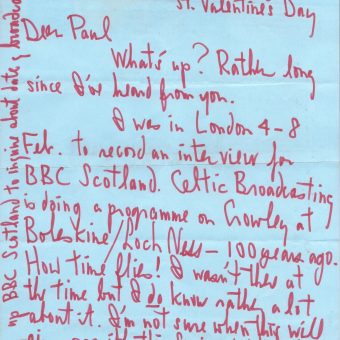 St. Valentine's Day
Dear Paul
What's up? Rather long
since I've heard from you.
I was in London 4-8
Feb. to record an interview for
BBC Scotland. Celtic Broadcasting
is doing a programme on Crowley at
Boleskine / Loch Ness - 100 years ago.
How time flies! I wasn't there at
the time but I do know rather a lot
about it. I'm not sure when this will
up BBC Scotland to inquire about date of broadcast